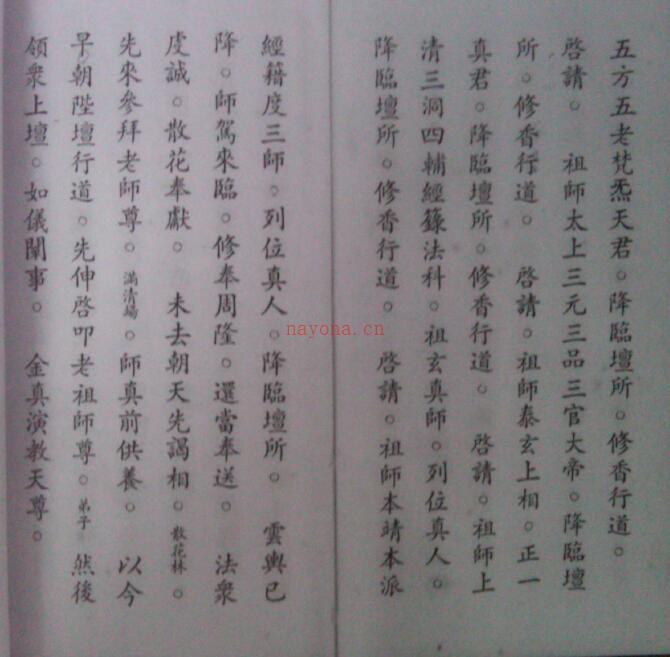 五方五老梵炁天君。降臨壇所。修香行道。
啓請。　祖師太上三元三品三官大帝。降臨壇
所。修香行道。　啓請。祖師泰玄上相。正一
真君。降臨壇所。修香行道。　啓請。祖師上
清三洞四輔經籙法科。祖玄真師。列位真人。
降臨壇所。修香行道。　啓請。祖師本靖本派
經籍度三師。列位真人。降臨壇所。　雲輿已
降。師駕來臨。修奉周隆。還當奉送。　法衆
虔誠。散花奉獻。　未去朝天先謁相。散花林。
先來參拜老師尊。滿清場。師真前供養。　以今
早朝陛壇行道。先伸啓叩老祖師尊。弟子　然後
領衆上壇。如儀闡事。　金真演教天尊。
nayona.cn